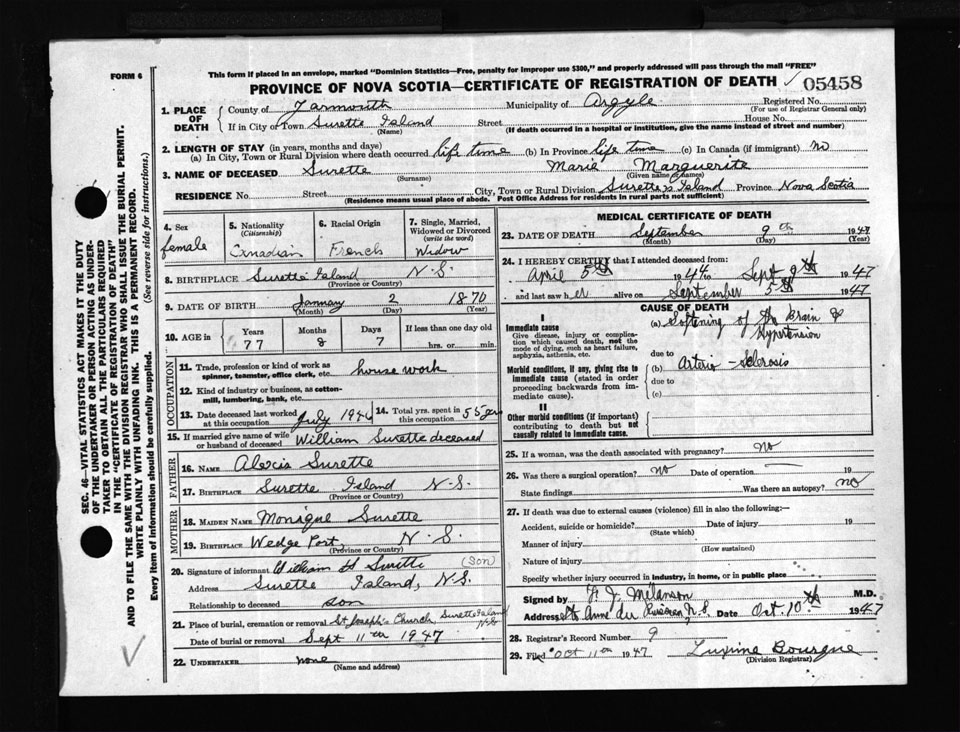 FORM 6
This form if placed in an envelope, marked "Dominion Statistics—Free, penalty for improper use $300," and properly addressed will pass through the mail "FREE"
PROVINCE OF NOVA SCOTIA—CERTIFICATE OF REGISTRATION OF DEATH ✓ 05458
1. PLACE OF DEATH
County of Yarmouth Municipality of Argyle Registered No.
(For use of Registrar General only)
If in City or Town Surette Island Street House No.
(Name) (If death occurred in a hospital or institution, give the name instead of street and number)
2. LENGTH OF STAY (in years, months and days)
(a) In City, Town or Rural Division where death occurred life time (b) In Province life time (c) In Canada (if immigrant) no
3. NAME OF DECEASED Surette Marie Marguerite
(Surname) (Given names)
RESIDENCE No. Street City, Town or Rural Division Surette's Island Province Nova Scotia
(Residence means usual place of abode. Post Office Address for residents in rural parts not sufficient)
4. Sex
female
5. Nationality
(Citizenship)
Canadian
6. Racial Origin
French
7. Single, Married, Widowed or Divorced
(write the word)
Widow
8. BIRTHPLACE Surette Island N.S.
(Province or Country)
9. DATE OF BIRTH January 2 1870
(Month) (Day) (Year)
10. AGE in
Years Months Days If less than one day old
77 8 7 hrs. or min.
OCCUPATION
11. Trade, profession or kind of work as spinner, teamster, office clerk, etc. house work
12. Kind of industry or business, as cotton-mill, lumbering, bank, etc.
13. Date deceased last worked at this occupation July
14. Total yrs. spent in this occupation 55 yrs
15. If married give name of wife or husband of deceased William Surette deceased
FATHER
16. NAME Alexis Surette
17. BIRTHPLACE Surette Island N.S.
(Province or Country)
MOTHER
18. MAIDEN NAME Monique Surette
19. BIRTHPLACE Wedge Port, N.S.
(Province or Country)
20. Signature of informant William H Surette (Son)
Address Surette Island, N.S.
Relationship to deceased son
21. Place of burial, cremation or removal St Joseph's Church, Surette Island N.S.
Date of burial or removal Sept 11th 1947
22. UNDERTAKER none
(Name and address)
MEDICAL CERTIFICATE OF DEATH
23. DATE OF DEATH September 9th 1947
(Month) (Day) (Year)
24. I HEREBY CERTIFY that I attended deceased from:
April 5th 1944 to Sept 9th 1947
and last saw her alive on September 5th 1947
CAUSE OF DEATH
I
Immediate cause
Give disease, injury or complication which caused death, not the mode of dying, such as heart failure, asphyxia, asthenia, etc.
(a) Softening of the brain & Hypertension
due to
Morbid conditions, if any, giving rise to immediate cause (stated in order proceeding backwards from immediate cause).
(b) Arterio-Sclerosis
due to
(c)
II
Other morbid conditions (if important) contributing to death but not causally related to immediate cause.
25. If a woman, was the death associated with pregnancy? no
26. Was there a surgical operation? no Date of operation — 19
State findings Was there an autopsy? no
27. If death was due to external causes (violence) fill in also the following:—
Accident, suicide or homicide? Date of injury 19
(State which)
Manner of injury
(How sustained)
Nature of injury
Specify whether injury occurred in industry, in home, or in public place
Signed by F. J. Melanson M.D.
Address St Anne du Ruisseau N.S. Date Oct 10th 1947
28. Registrar's Record Number 9
29. Filed Oct 11th 1947 Bourque
(Division Registrar)
SEC. 46—VITAL STATISTICS ACT MAKES IT THE DUTY
OF THE UNDERTAKER OR PERSON ACTING AS UNDER-
TAKER TO OBTAIN ALL THE PARTICULARS REQUIRED
IN THE "CERTIFICATE OF REGISTRATION OF DEATH"
AND TO FILE THE SAME WITH THE DIVISION REGISTRAR WHO SHALL ISSUE THE BURIAL PERMIT.
WRITE PLAINLY WITH UNFADING INK. THIS IS A PERMANENT RECORD.
Every item of information should be carefully supplied. (See reverse side for instructions.)